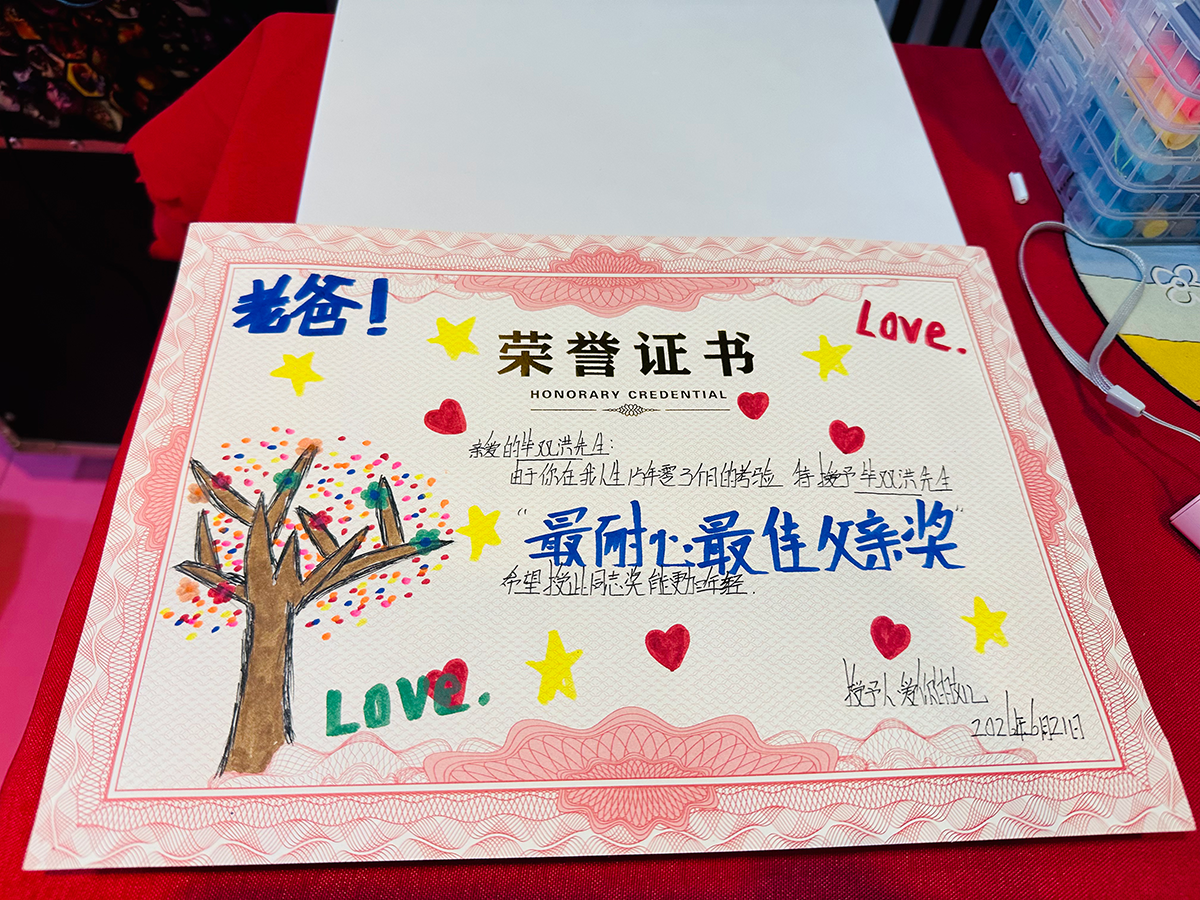 老爸!
荣誉证书
Love.
HONORARY CREDENTIAL
亲爱的毕双洪先生:
由于你在我人生15年零3个月的考验 特授予毕双洪先生
“最耐心最佳父亲奖”
希望授此同志奖能更加年轻.
Love.
授予人:爱你的
2026年6月21日